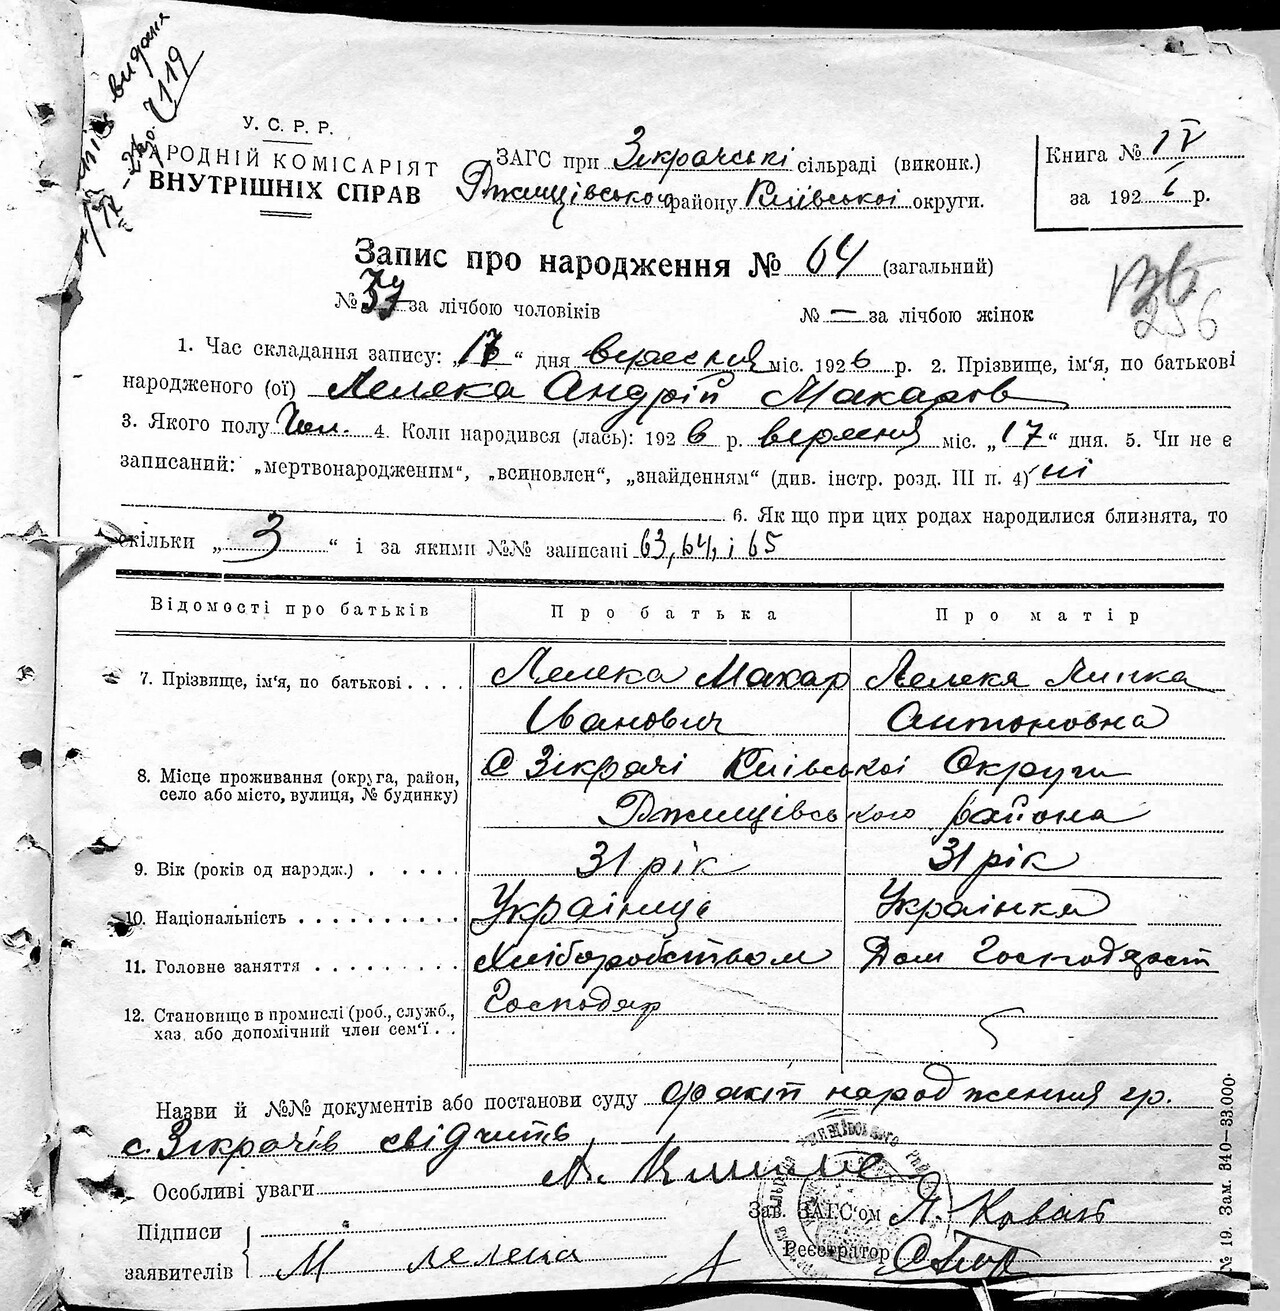 видана
7119
У. С. Р. Р.
АРОДНІЙ КОМІСАРІЯТ
ВНУТРІШНІХ СПРАВ
ЗАГС при Зікрачські сільраді (виконк.)
Ржищівського району Київської округи.
Книга № IV
за 1926 р.
Запис про народження № 64 (загальний)
№ 39 за лічбою чоловіків № — за лічбою жінок
256
1. Час складання запису: „17“ дня вересня міс. 1926 р. 2. Прізвище, ім'я, по батькові
народженого (ої) Лелека Андрій Макаров
3. Якого полу Чол. 4. Коли народився (лась): 1926 р. вересня міс. „17“ дня. 5. Чи не є
записаний: „мертвонародженим“, „всиновлен“, „знайденням“ (див. інстр. розд. III п. 4) ні
6. Як що при цих родах народилися близнята, то
скільки „3“ і за якими №№ записані 63, 64, і 65
Відомості про батьків Про батька Про матір
7. Прізвище, ім'я, по батькові . . . . Лелека Макар Лелека Линка
Іванович Антоновна
8. Місце проживання (округа, район, с Зікрачі Київської Округи
село або місто, вулиця, № будинку) Ржищівського района
9. Вік (років од народж.) . . . . . 31 рік 31 рік
10. Національність . . . . . . . . . . Українець Українка
11. Головне заняття . . . . . . . . . Хліборобством Дом Господарст
12. Становище в промислі (роб., служб., Господар
хаз. або допомічний член сем'ї . .
Назви й №№ документів або постанови суду факт народження гр.
с. Зікрачів свідчить
Особливі уваги
Підписи
заявителів М Лелека
Зав. ЗАГС'ом Я. Коваль
Реєстратор
№ 19. Зам. 340—33.000.